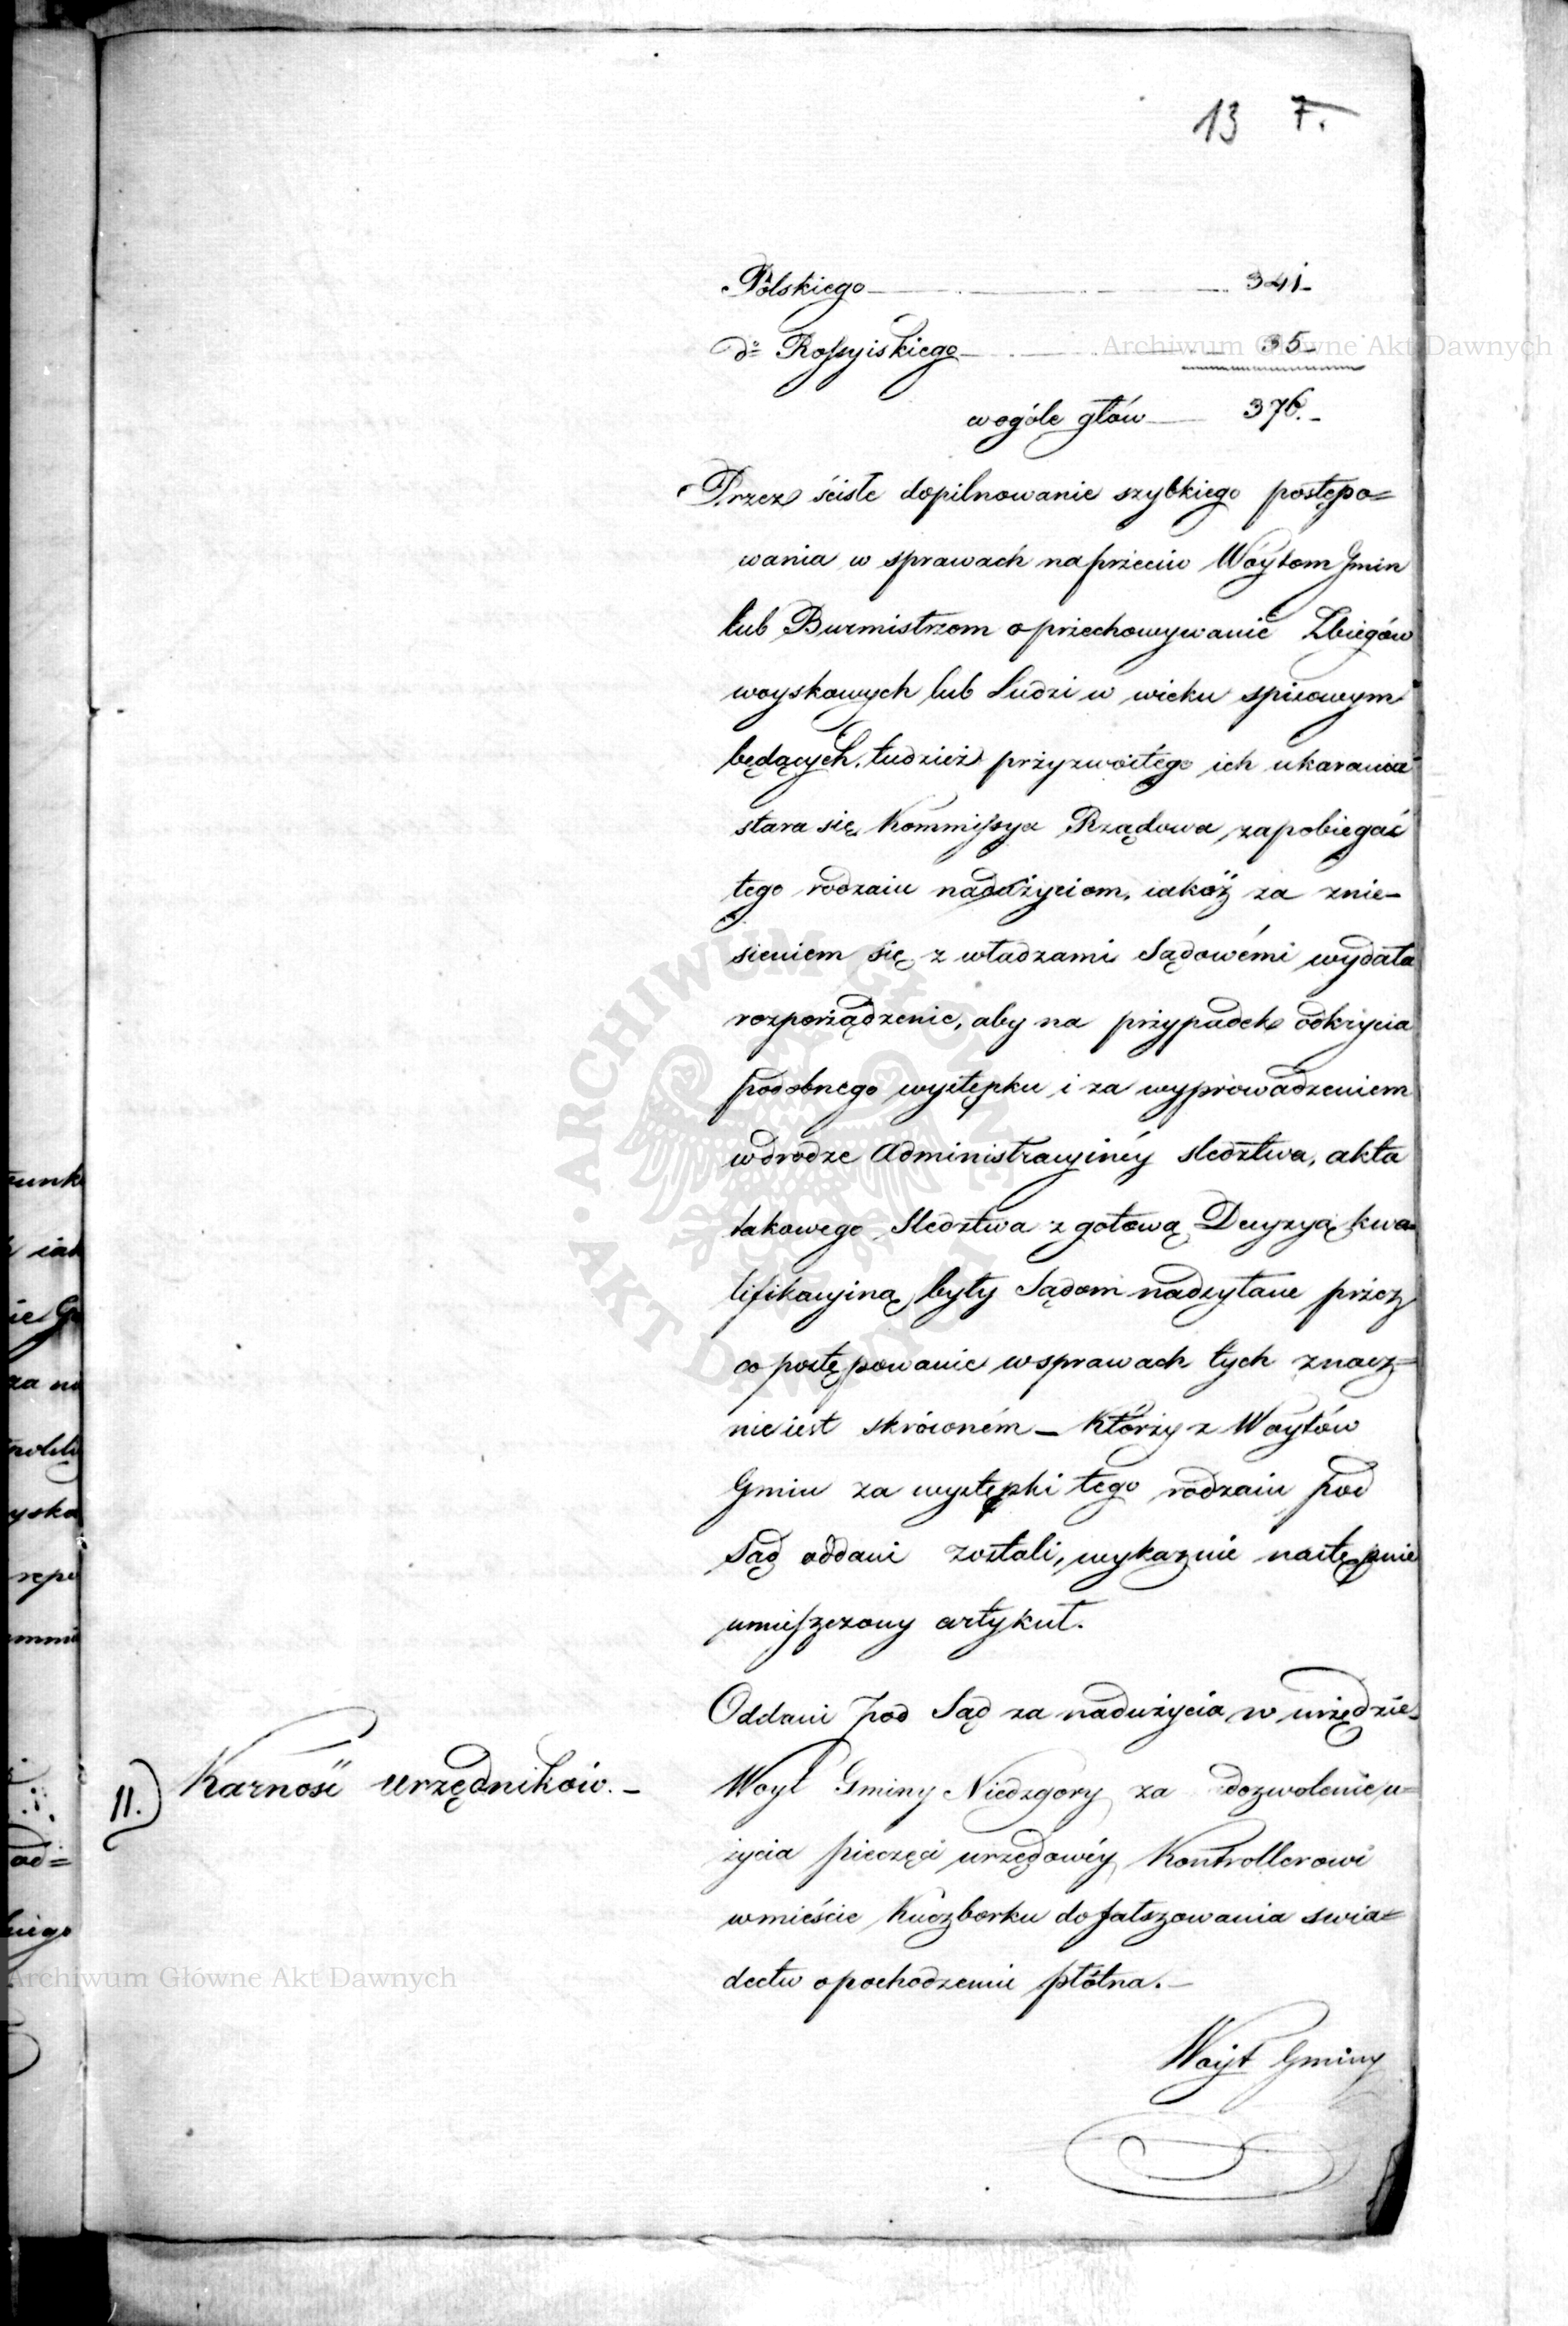 13 7.
Polskiego 341
do Rossyiskiego 35
wogóle głów 376.
Przez ścisłe dopilnowanie szybkiego postępo=
wania w sprawach naprzeciw Wóytom Gmin
lub Burmistrzom o przechowywanie Zbiegów
woyskowych lub Ludzi w wieku spisowym
będących, tudzież przyzwoitego ich ukarania
stara się Kommissya Rządowa zapobiegać
tego rodzaiu nadużyciom, iakoż za znie-
sieniem się z władzami Sądowémi wydała
rozporządzenie, aby na przypadek odkrycia
podobnego występku i za wyprowadzeniem
wdrodze Administracyinéy sledztwa, akta
takowego Sledztwa z gotową Decyzyą kwa
lifikacyiną były Sądom nadsyłane przez
co postępowanie wsprawach tych znacz=
nie iest skróconém – Którzy z Woytów
Gmin za występki tego rodzaiu pod
Sąd oddani zostali, wykaznie następnie
umieszczony artykuł.
Oddani pod Sąd za nadużycia w urzędzie
11.) Karność Urzędników. –
Woyt Gminy Niedzgory za dozwolenie u=
życia pieczęci urzędowéy Kontrollerowi
wmieście Kuczborku do fałszowania swia=
dectw o pochodzeniu płótna. –
Woyt Gminy
Archiwum Główne Akt Dawnych
Archiwum Główne Akt Dawnych
ARCHIWUM GŁÓWNE
AKT DAWNYCH